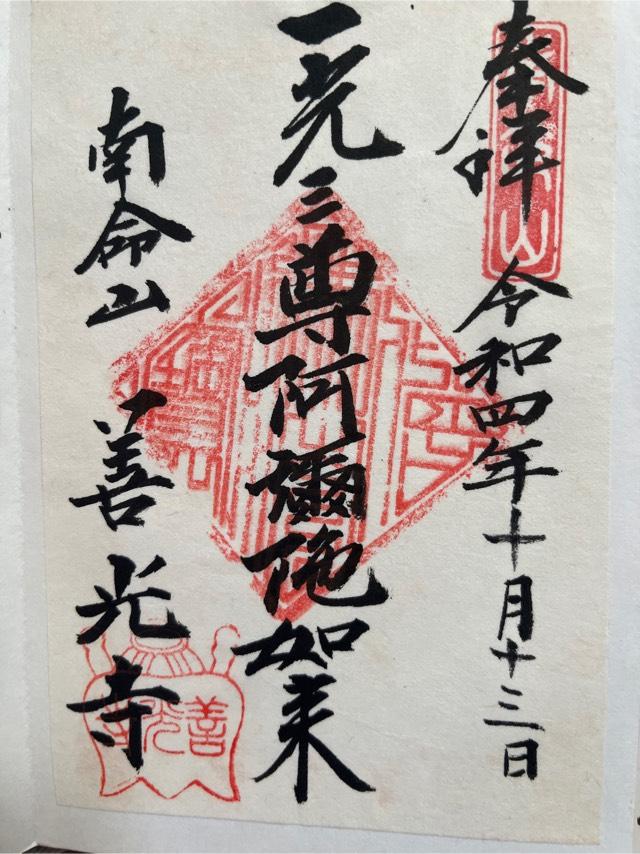 奉祥 令和四年十月十三日
一光三尊阿彌陀如来
南命山 善光寺
善光寺